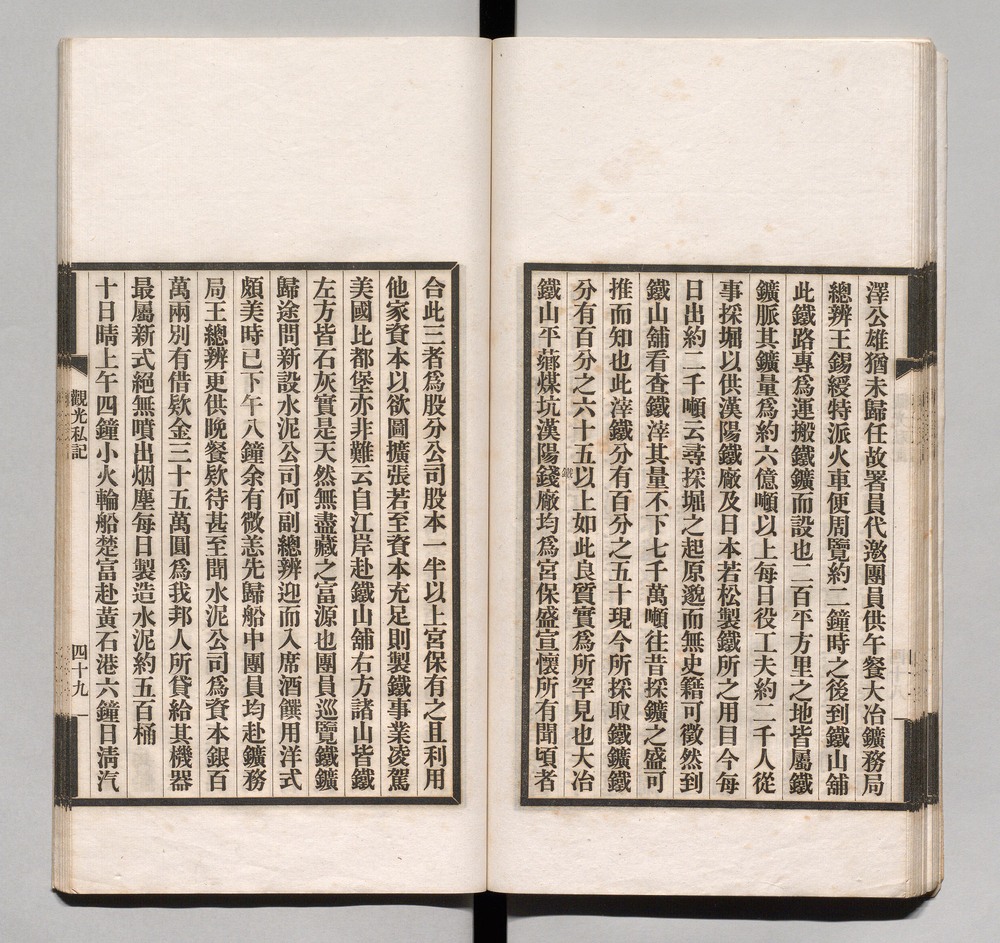 澤公雄猶未歸任故署員代邀團員供午餐大冶鑛務局
總辨王錫綬特派火車便周覽約二鐘時之後到鐵山舖
此鐵路專爲運搬鐵鑛而設也二百平方里之地皆屬鐵
鑛脈其鑛量爲約六億噸以上每日役工夫約二千人從
事採堀以供漢陽鐵廠及日本若松製鐵所之用目今每
日出約二千噸云尋採堀之起原邈而無史籍可徵然到
鐵山舖看查鐵滓其量不下七千萬噸往昔採鑛之盛可
推而知也此滓鐵分有百分之五十現今所採取鐵鑛鐵
分有百分之六十五以上如此良質實爲所罕見也大冶
鐵
鐵山平薌煤坑漢陽錢廠均爲宮保盛宣懷所有聞頃者
合此三者爲股分公司股本一半以上宮保有之且利用
他家資本以欲圖擴張若至資本充足則製鐵事業凌駕
美國比都堡亦非難云自江岸赴鐵山舖右方諸山皆鐵
左方皆石灰實是天然無盡藏之富源也團員巡覽鐵鑛
歸途問新設水泥公司何副總辨迎而入席酒饌用洋式
頗美時已下午八鐘余有微恙先歸船中團員均赴鑛務
局王總辨更供晚餐欵待甚至聞水泥公司爲資本銀百
萬兩別有借欵金三十五萬圓爲我邦人所貸給其機器
最屬新式絕無噴出烟塵每日製造水泥約五百桶
十日晴上午四鐘小火輪船楚富赴黃石港六鐘日淸汽
觀光私記
四十九